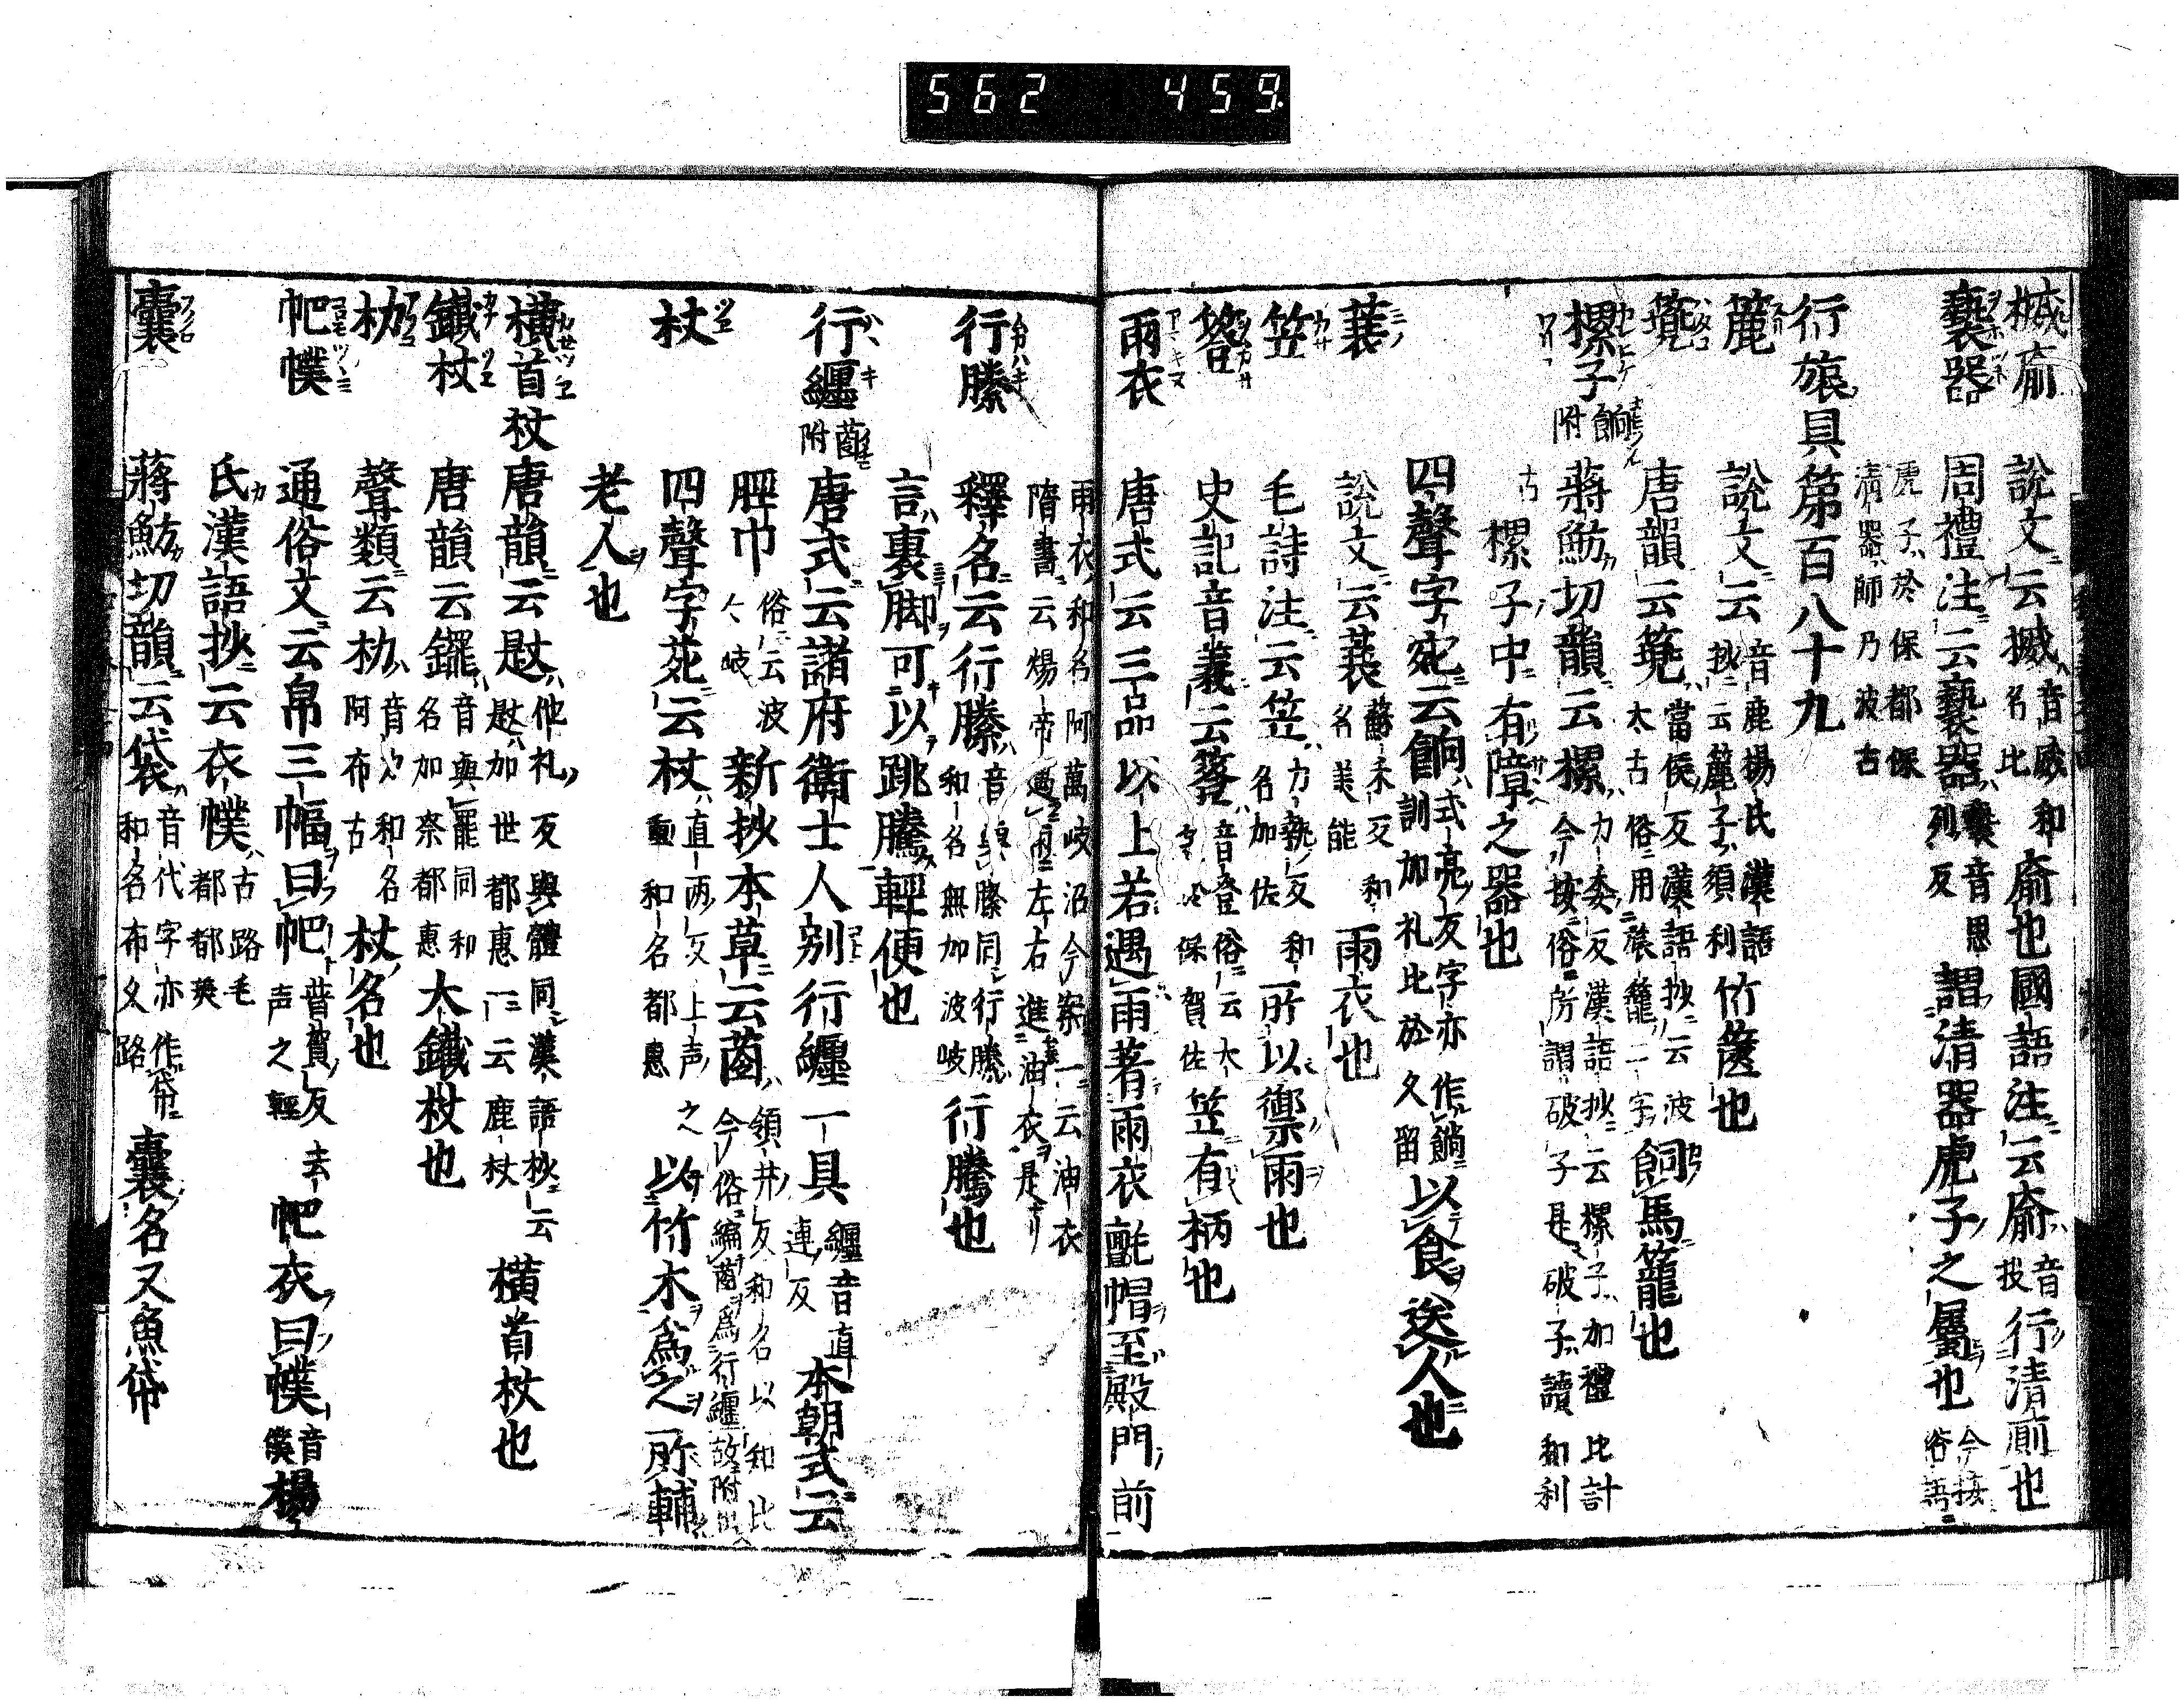 562 459.
楲㢏 説文云楲 音威和名比 㢏也國語注云㢏 音投 行清廁也
褻器 周禮注云褻器 褻音思列反 謂清器虎子之属也 今按俗語
虎子於保都保清器師乃波古
行旅具第百八十九
簏 説文云 音鹿楊氏漢語抄云簏子須利 竹篋也
篼 唐韻云篼 當侯反漢語抄云波太古俗用旅籠二字 飼馬籠也
樏子 餉附 蔣魴切韻云樏 力委反漢語抄云樏子加礼比計今按俗所謂破子是破子讀和利古
樏子中有障之器也
四聲字苑云餉 式亮反字亦作饟訓加礼比於久留 以食送人也
蓑 説文云蓑 蘇禾反和名美能 雨衣也
笠 毛詩注云笠 力執反和名加佐 所以禦雨也
簦 史記音義云簦 音登俗云大加佐 笠有柄也
雨衣 唐式云三品以上若遇雨著雨衣氈帽至殿門前
雨衣和名阿萬岐沼今案一云油衣隋書云煬帝遇雨左右進油衣是
行縢 釋名云行縢 音騰縢同行縢和名無加波岐 行騰也
言裹脚可以跳騰輕便也
行纏 附 唐式云諸府衛士人别行纏一具 纏音直連反 本朝式云
脛巾 俗云波々岐 新抄本草云 領井反和名以知比今俗編爲行纏故附出
杖 四聲字苑云杖 直兩反上声之重和名都惠 以竹木爲之所輔
老人也
横首杖 唐韻云 他礼反與體同漢語抄云加世都惠一云鹿杖 横首杖也
鐵杖 唐韻云鑼 音與羅同和名加奈都惠 大鐵杖也
朸 聲類云朸 音力和名阿布古 杖名也
帊幞 通俗文云帛三幅曰帊 普賀反去声之輕 帊衣曰幞 音僕 楊
氏漢語抄云衣幞 古路毛都都美
囊 蔣魴切韻云袋 音代字亦作帒和名布久路 囊名又魚帒